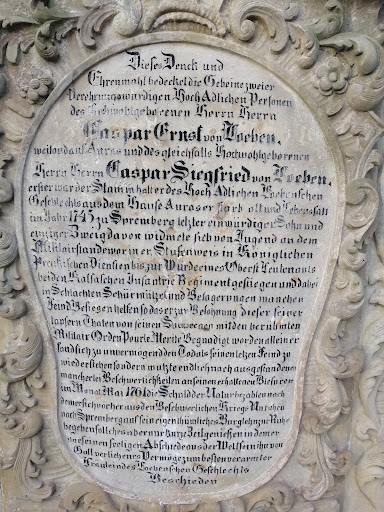 Dieses Denck und
Ehrenmahl bedecket die Gebeine zweier
Verehrungswürdigen Hoch Adlichen Personen
des Hochwohlgebohrenen Herrn Herrn
Caspar Ernst von Loeben,
weiland auf Auras und des gleichfalls Hochwohlgebohrenen
Herrn Herrn Caspar Siegfried von Loeben,
erster war der Stammhalter des Hoch Adlichen Loebenschen
Geschlechts aus dem Hause Auras er starb alt und Lebenssatt
im Jahr 1745 zu Spremberg letzter ein würdiger Sohn und
einziger Zweig davon widmete sich von Jugend an dem
Militairstande wor in er Stufenweis in Königlichen
Preusischen Diensten bis zur Würde eines Obrist Leutenants
beiden Infantrie Regiment gestiegen und da bei
in Schlachten Scharmützel und Belagerungen manchen
Feind Besiegen helfen so das er zur Belohnung dieser seiner
tapfern Thaten von seinen mit den berühmten
Militair Orden Pour le Merite Begnadigt worden allein er
fand sich zu unvermögend den Tod als seinen letzen Feind zu
wiederstehen sondern muste endlich nach ausgestandenen
mancherlei Beschwerlichkeiten an seinen erhaltenen Blesuren
im Monat Mai 1761 die Schuld der Natur bezahlen nach
dem er sich vorher aus den Beschwerlichen Kriegs Unruhen
nach Spremberg auf sein eigenthümliches Burglehn zur Ruhe
begeben solches aber nur kurze Zeit geniessen in dem er
ohne seinen seeligen Abschiede aus der Welt sein ihn von
Gott verliehenes Vermögen zum besten verarmter
Fräulein des Loebenschen Geschlechts
Beschieden